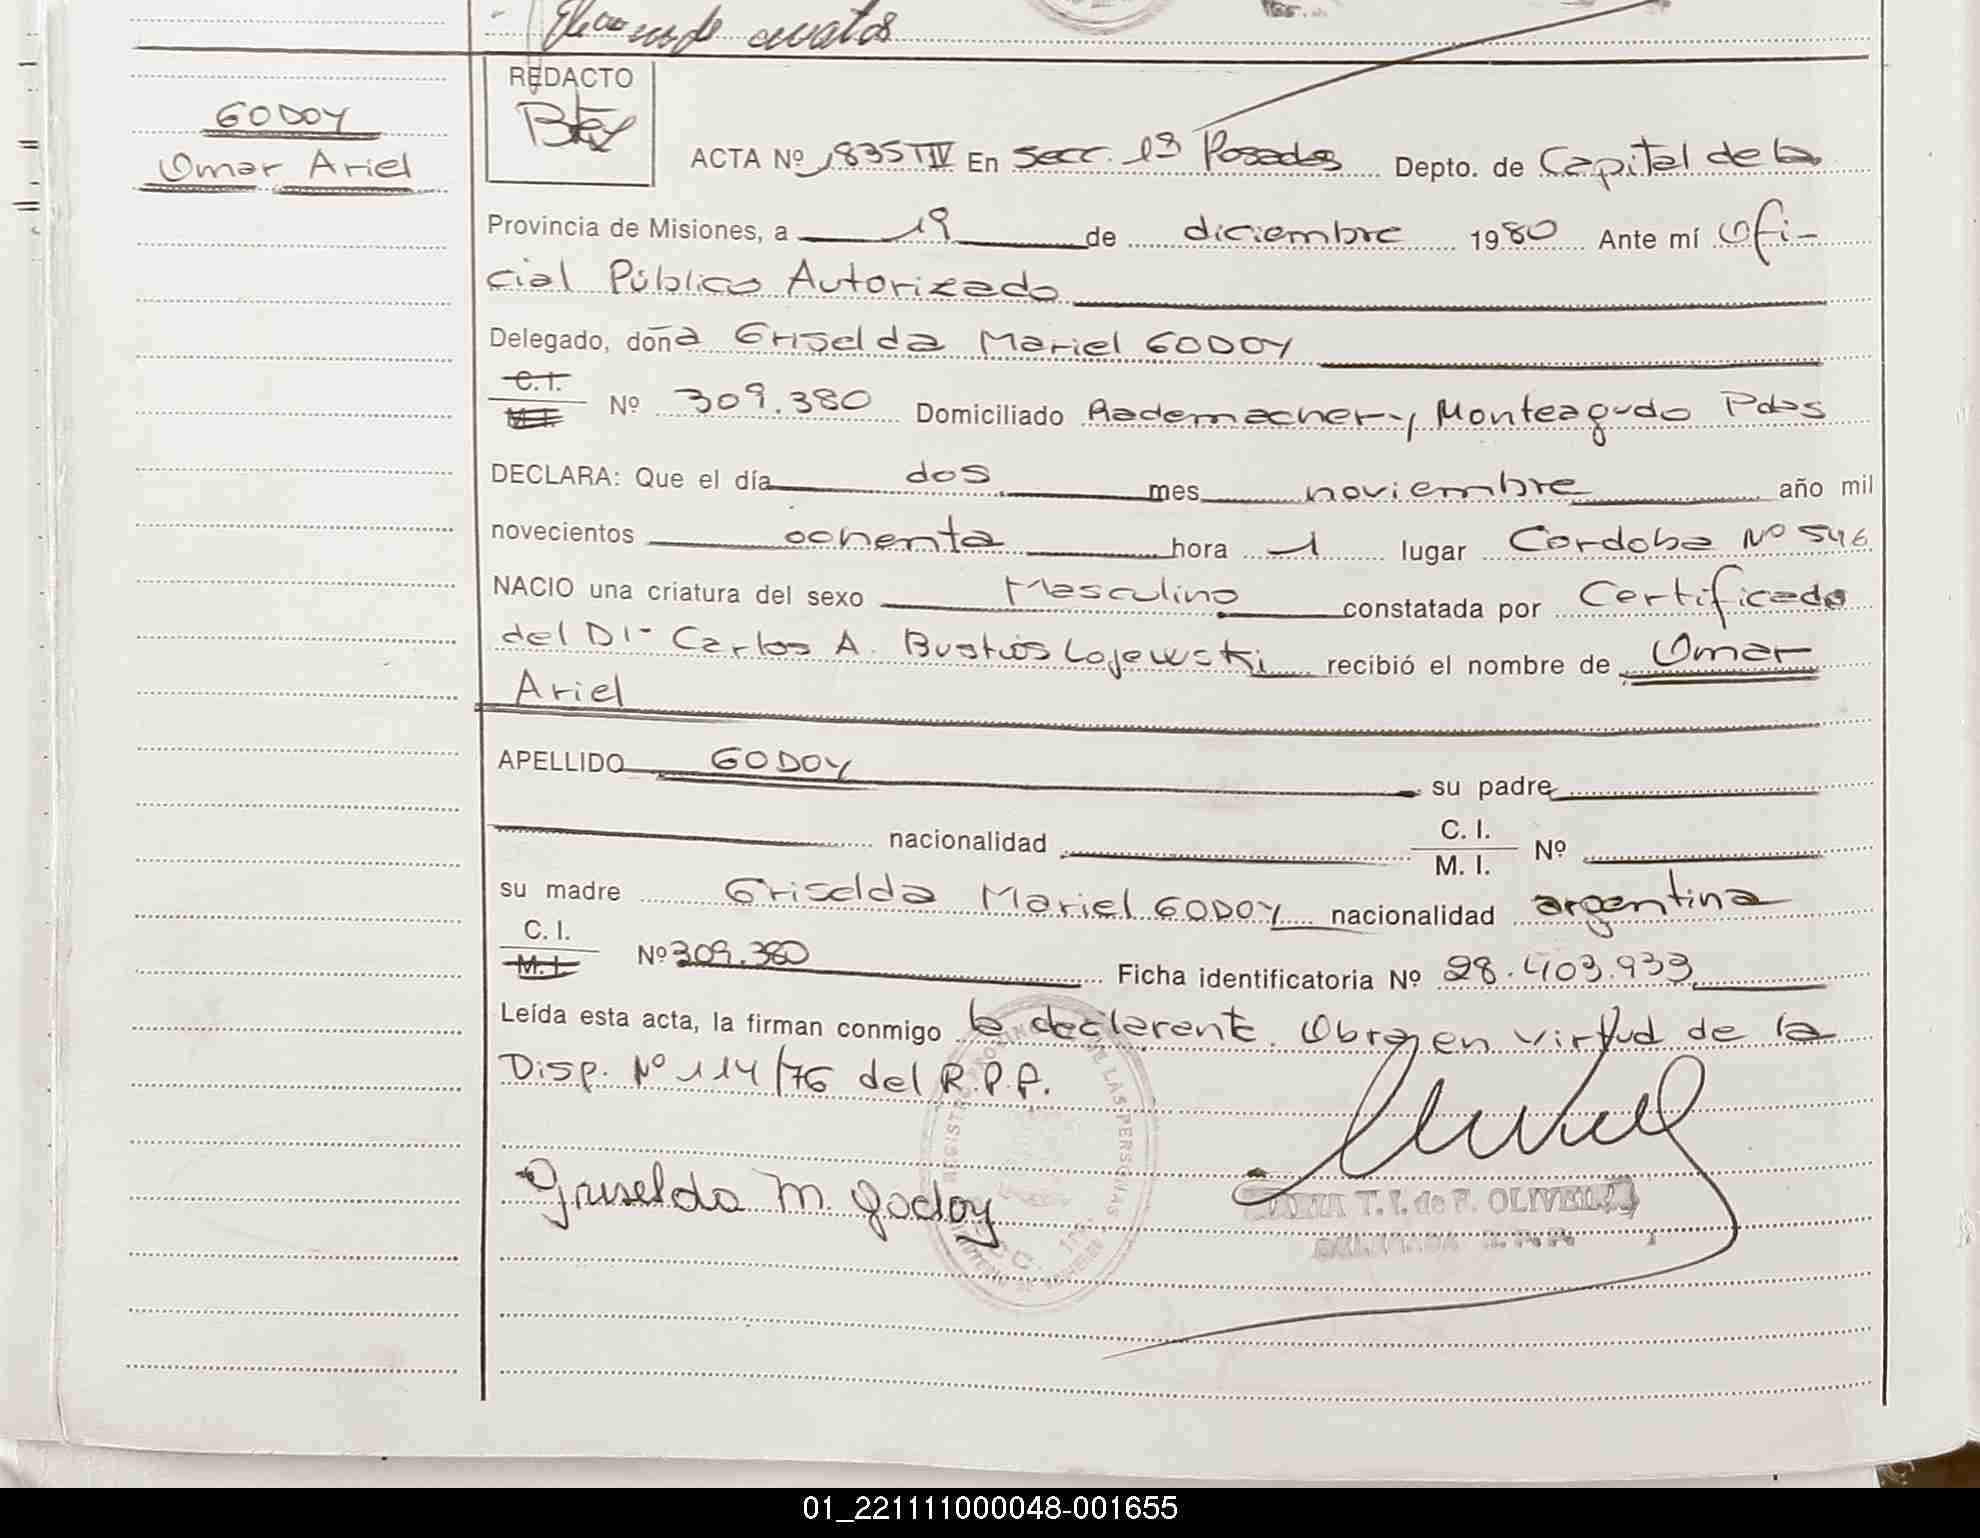 GODOY
Omar Ariel
REDACTO
ACTA Nº 1835 TIV En Secc. 1ª Posadas Depto. de Capital de la
Provincia de Misiones, a 19 de diciembre 1980 Ante mí Ofi-
cial Público Autorizado
Delegado, doña Griselda Mariel GODOY
C.I.
M.I. Nº 309.380 Domiciliado Rademacher y Monteagudo Pdas
DECLARA: Que el día dos mes noviembre año mil
novecientos ochenta hora 1 lugar Cordoba Nº 546
NACIO una criatura del sexo Masculino constatada por Certificado
del Dr Carlos A. Bustos Lojewski recibió el nombre de Omar
Ariel
APELLIDO GODOY su padre
nacionalidad C. I. M. I. Nº
su madre Griselda Mariel GODOY nacionalidad argentina
C. I.
M. I. Nº 309.380 Ficha identificatoria Nº 28.403.933
Leída esta acta, la firman conmigo la declarante. Obra en virtud de la
Disp. Nº 114/76 del R.P.P.
Griselda M. Godoy
T. I. de F. OLIVEIRA
01_221111000048-001655